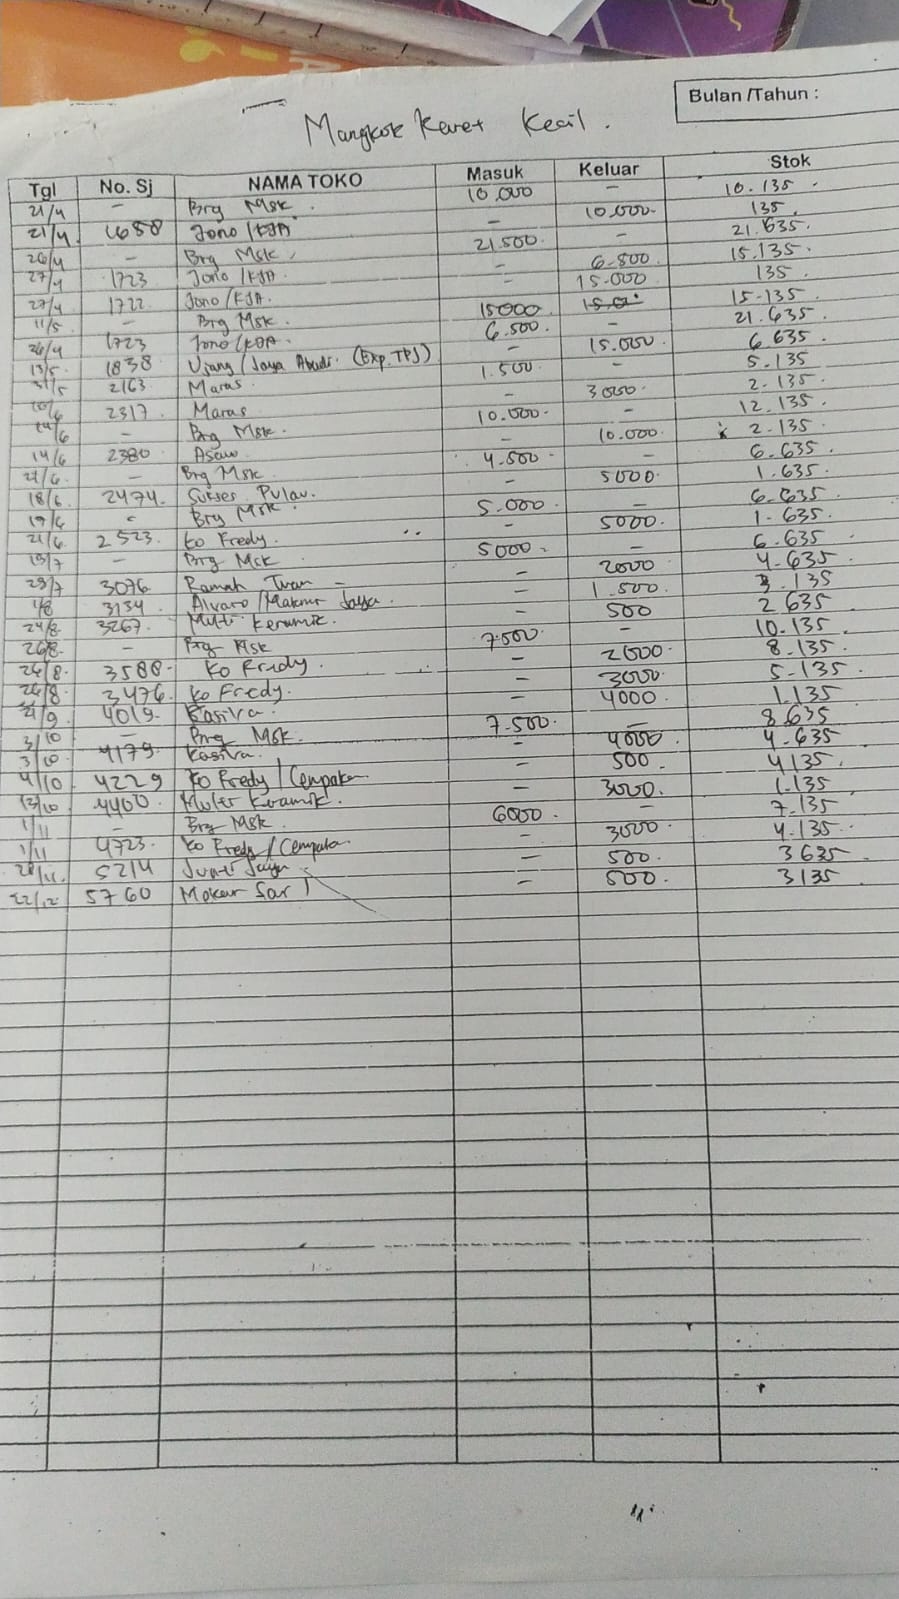 Bulan /Tahun :
Mangkok Karet Kecil .
Tgl No. Sj NAMA TOKO Masuk Keluar Stok
21/4 - Brg Msk . 10.000 - 10.135
21/4 1688 Jono /KJA - 10.000 135
26/4 - Brg Msk 21.500 - 21.635
27/4 1723 Jono /KJA - 6.500 15.135
27/4 1722 Jono /KJA - 15.000 135
11/5 - Brg Msk . 15000 15.135
26/4 1723 Jono /KJA 6.500 - 21.635
13/5 1838 Ujang / Jaya Abadi (Exp. TPJ) - 15.000 6.635
31/5 2163 Maras 1.500 - 5.135
2317 Maras - 3000 2.135
- Brg Msk 10.000 - 12.135
14/6 2380 - 10.000 2.135
- Brg Msk 4.500 - 6.635
18/6 2474 Sukses Pulau - 5000 1.635
19/6 - Brg Msk 5.000 - 6.635
21/6 2523 Ko Fredy - 5000 1.635
13/7 - Brg Msk 5000 - 6.635
29/7 3076 Ramah Iwan - 2000 4.635
1/8 3134 Alvaro /Makmur Jaya - 1.500 3.135
24/8 3267 Multi Keramik - 500 2635
26/8 - Brg Msk 7.500 - 10.135
26/8 3588 Ko Fredy - 2000 8.135
26/8 3476 Ko Fredy - 3000 5.135
21/9 4019 Kasiva - 4000 1.135
3/10 - Brg Msk 7.500 - 8.635
3/10 4179 Kasiva - 4000 4.635
4/10 4229 Ko Fredy / Cempaka - 500 4135
13/10 4400 Multi Keramik - 3000 1.135
1/11 - Brg Msk 6000 - 7.135
1/11 4723 Ko Fredy / Cempaka - 3000 4.135
28/11 5214 Jaya - 500 3635
22/12 5760 Mekar Sari - 500 3135